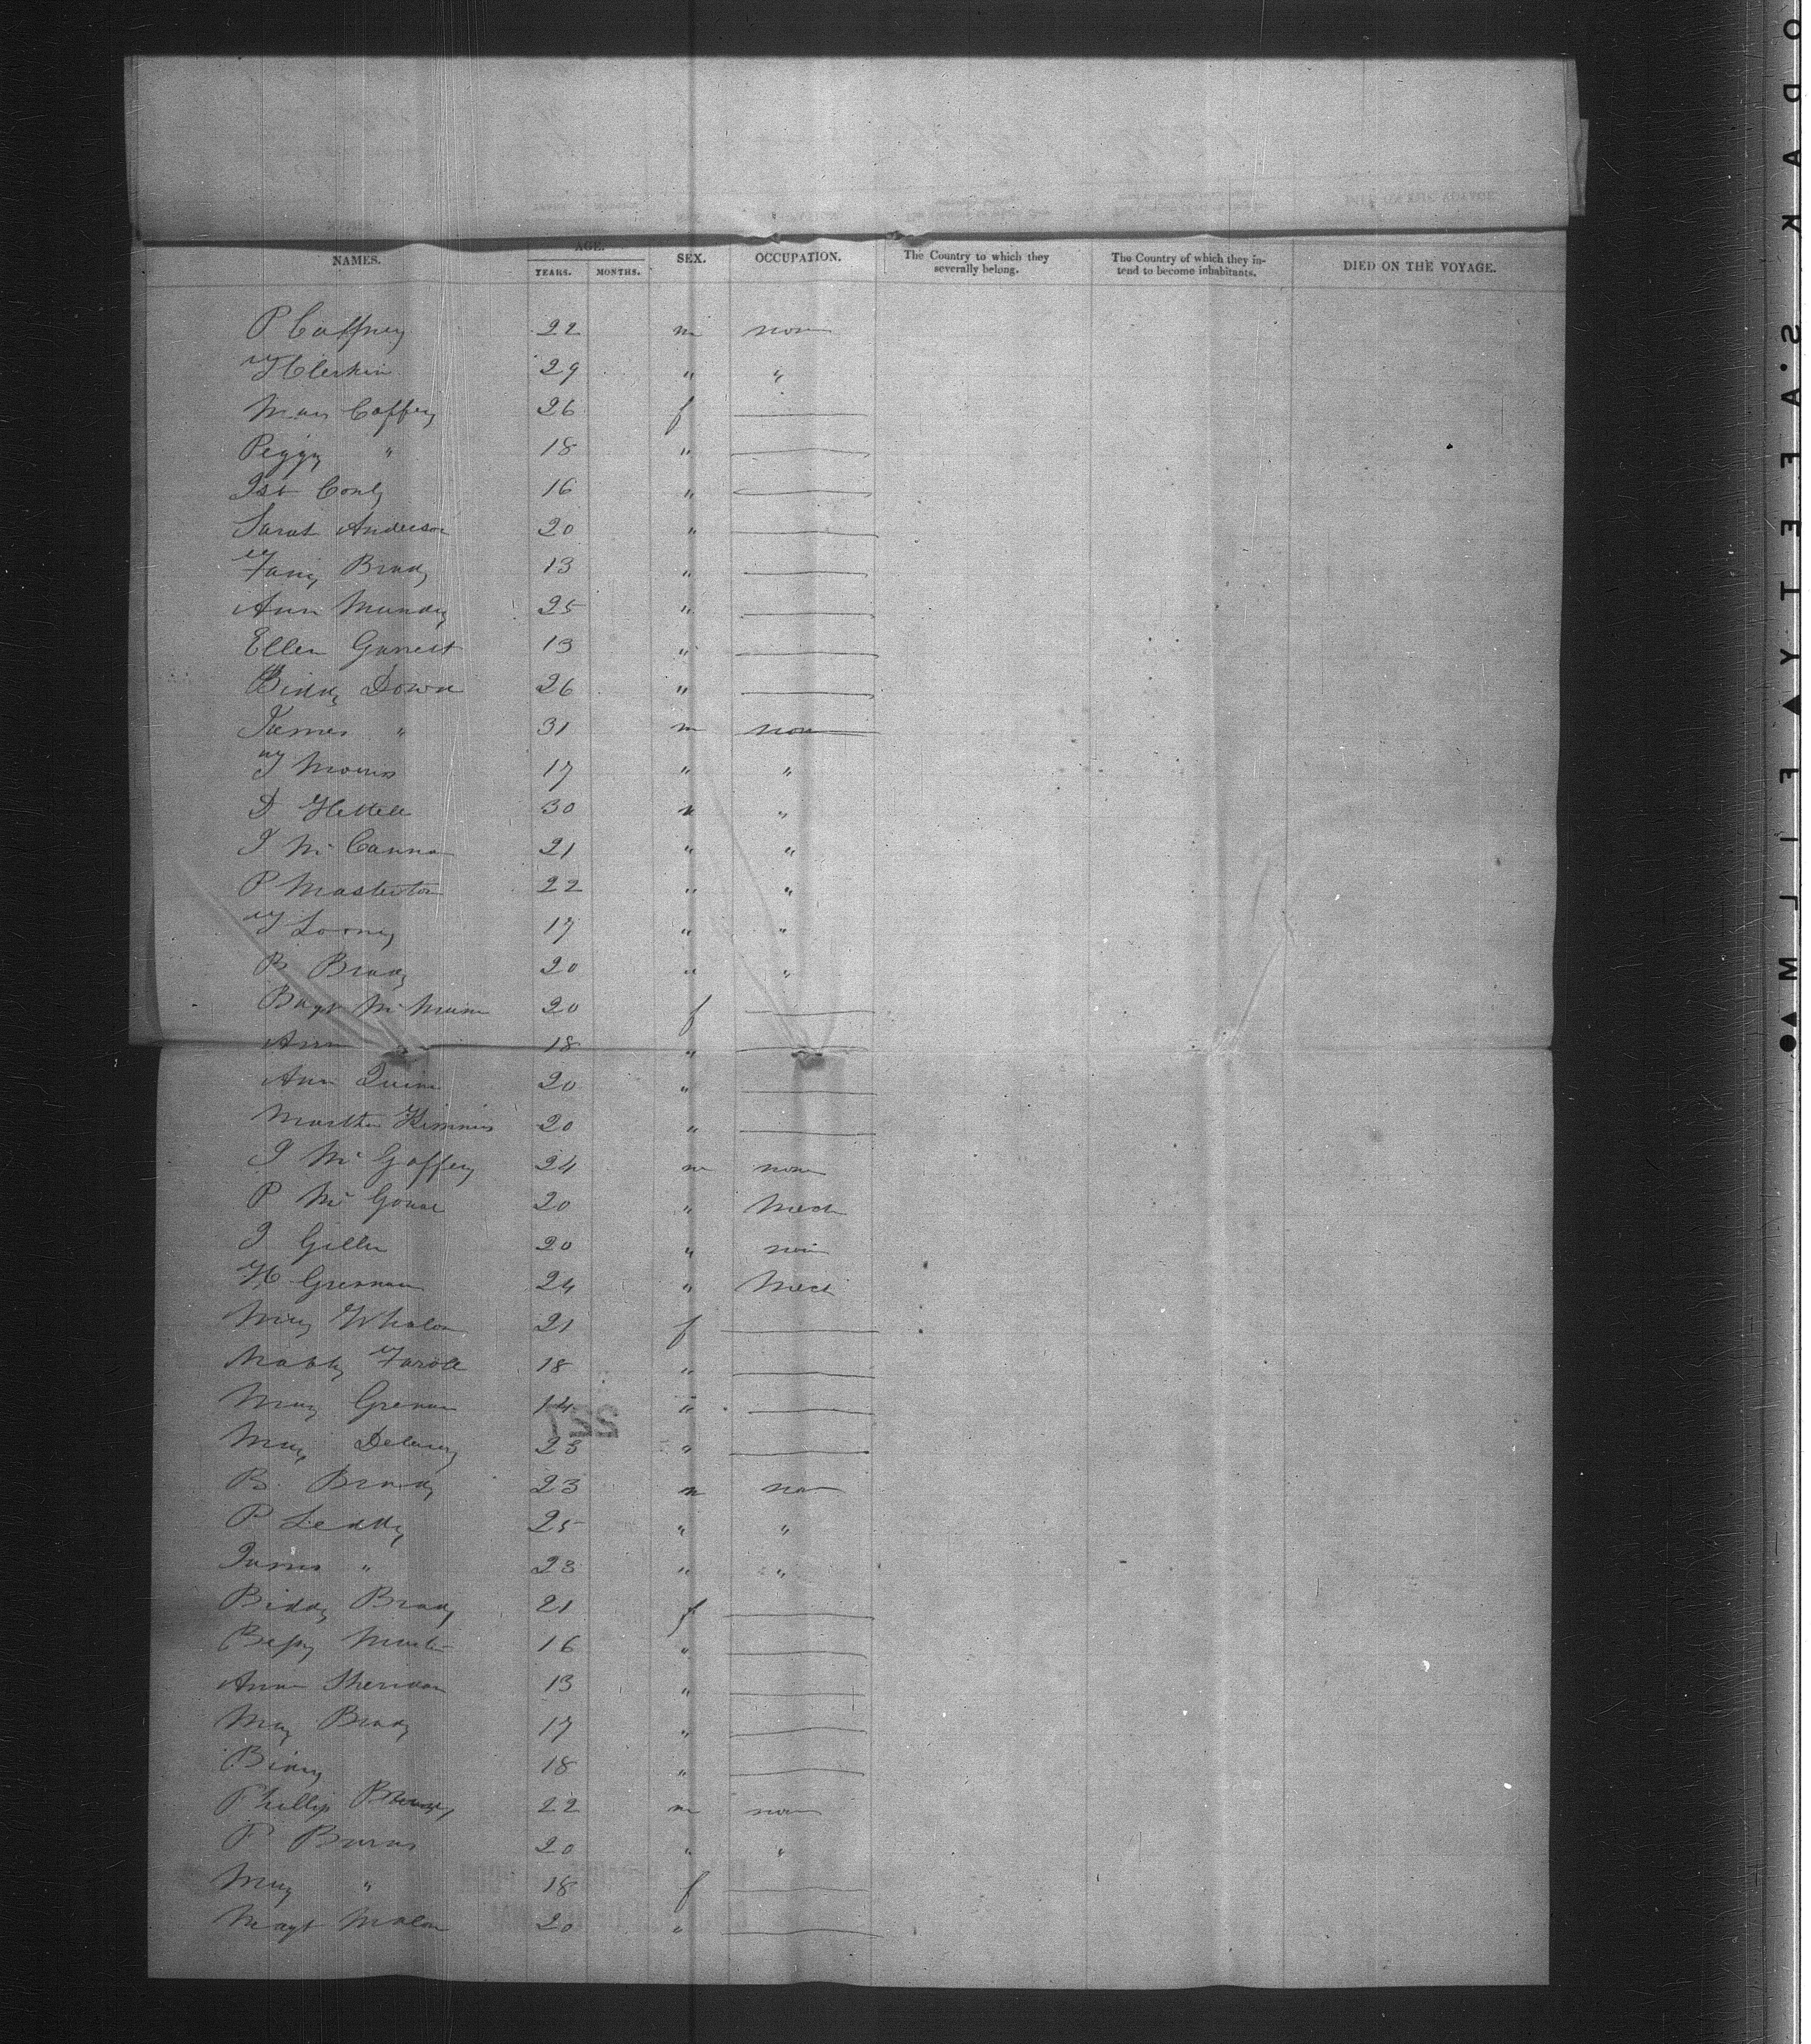 NAMES. AGE. YEARS. MONTHS. SEX. OCCUPATION. The Country to which they severally belong. The Country of which they intend to become inhabitants. DIED ON THE VOYAGE.
P Caffrey 22 m non
H Clerkin 29 " "
Mary Caffery 26 f
Peggy " 18 "
Isb Conly 16 "
Sarah Anderson 20 "
Fany Brady 13 "
Ann Munday 25 "
Ellen Garrett 13 "
Biddy Down 26 "
James " 31 m non
T Morris 17 " "
D Hettell 30 m "
J McCanna 21 " "
P Masterton 22 " "
T Looney 17 " "
B Brady 20 " "
20 f
Ann 18 "
Ann Quinn 20 "
Martha Kimmins 20 "
J McGaffery 24 m none
P McGoual 20 " Mech
J Gillen 20 " non
H Grennan 24 " Mech
Mary Whalon 21 f
Nabby Faroll 18 "
Mary Grenan 14 "
Mary Delany 23 "
B. Brady 23 m non
P Leddy 25 " "
James " 23 " "
Biddy Brady 21 f
Bessy Martin 16 "
Anna Sheridan 13 "
May Brady 17 "
18 "
Phillip 22 m non
F Burns 20 " "
May " 18 f
Magt Malon 20 "